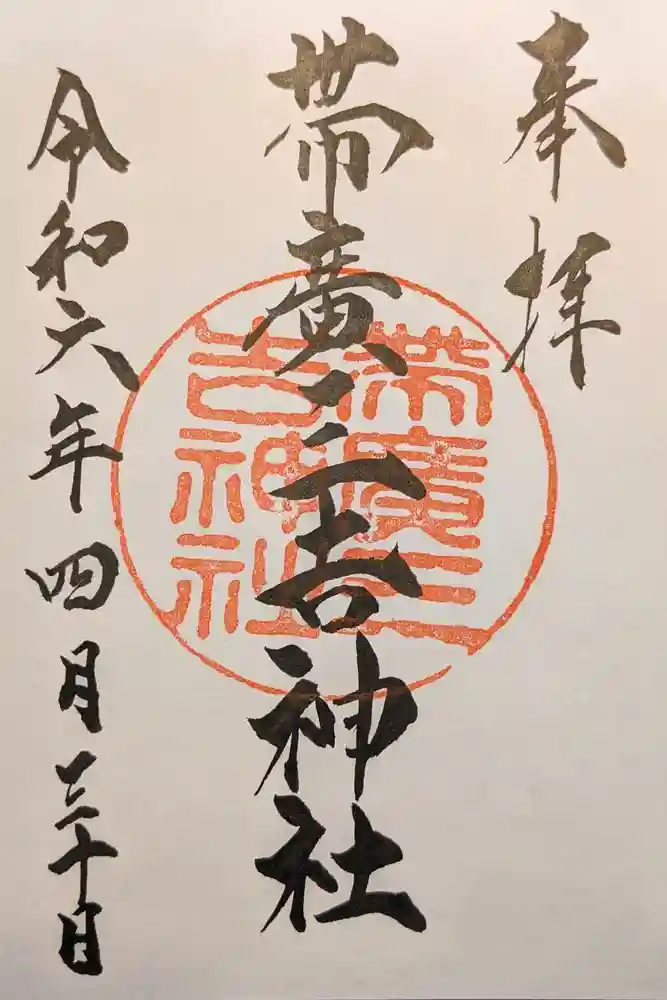 奉拝
帯廣三吉神社
帯廣三吉神社
令和六年四月三十日